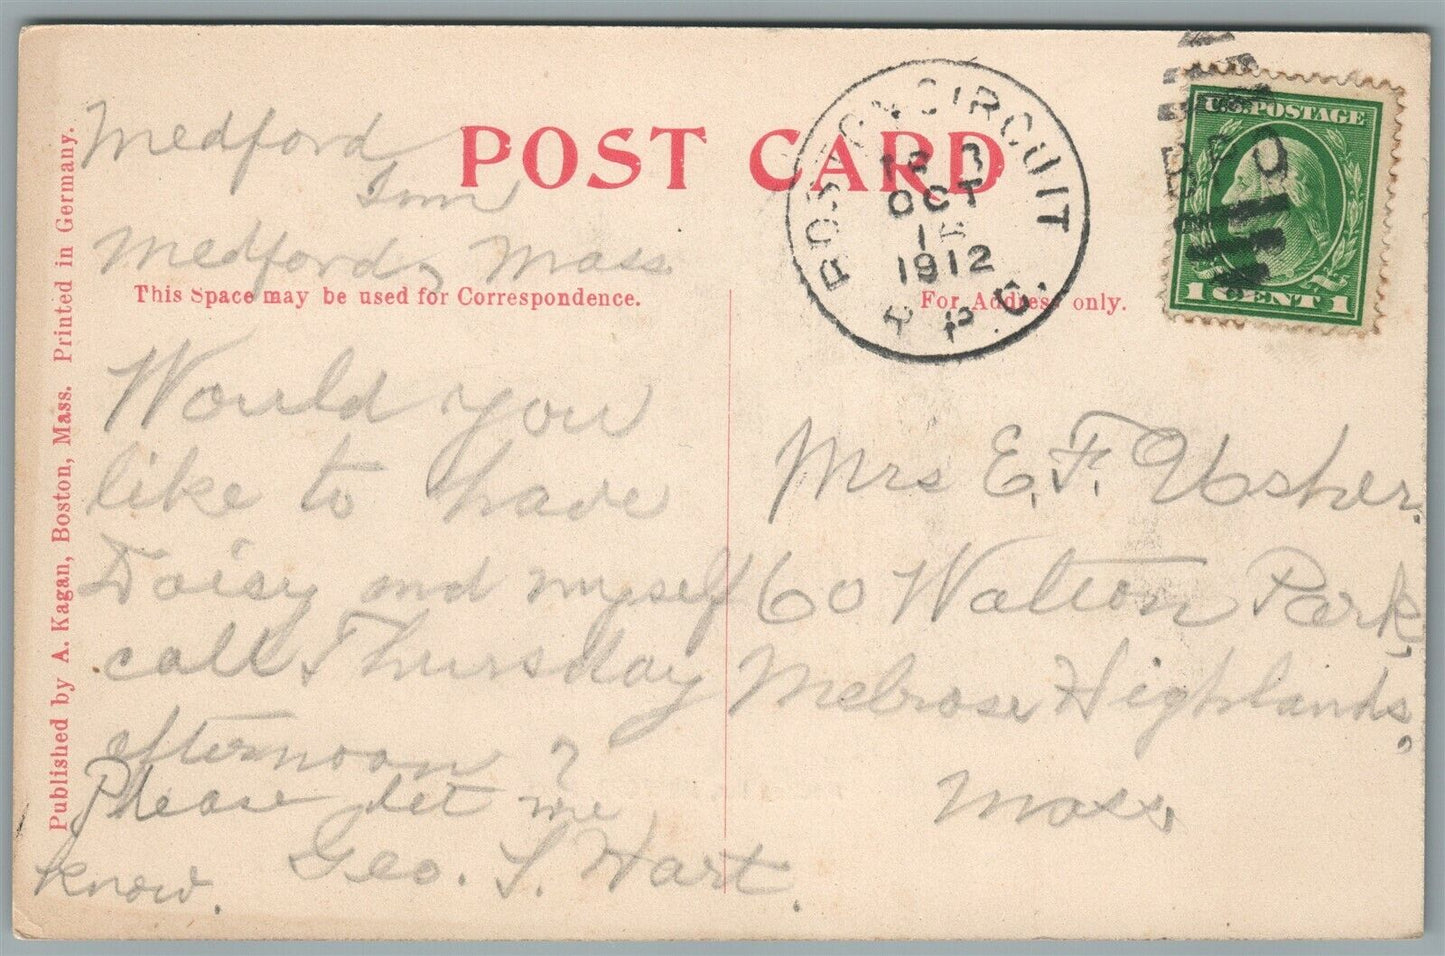 POST CARD
Published by A. Kagan, Boston, Mass. Printed in Germany.
Medford
Inn
Medford, Mass.
This Space may be used for Correspondence.
Would you
like to have
Daisy and myself
call Thursday
afternoon?
Please let me
know. Geo. S. Hart.
BOSTON CIRCUIT
OCT
1912
R.P.O.
RPO
U.S. POSTAGE
1 CENT 1
For Address only.
Mrs E. F. Usher.
60 Walton Park,
Melrose Highlands,
Mass.